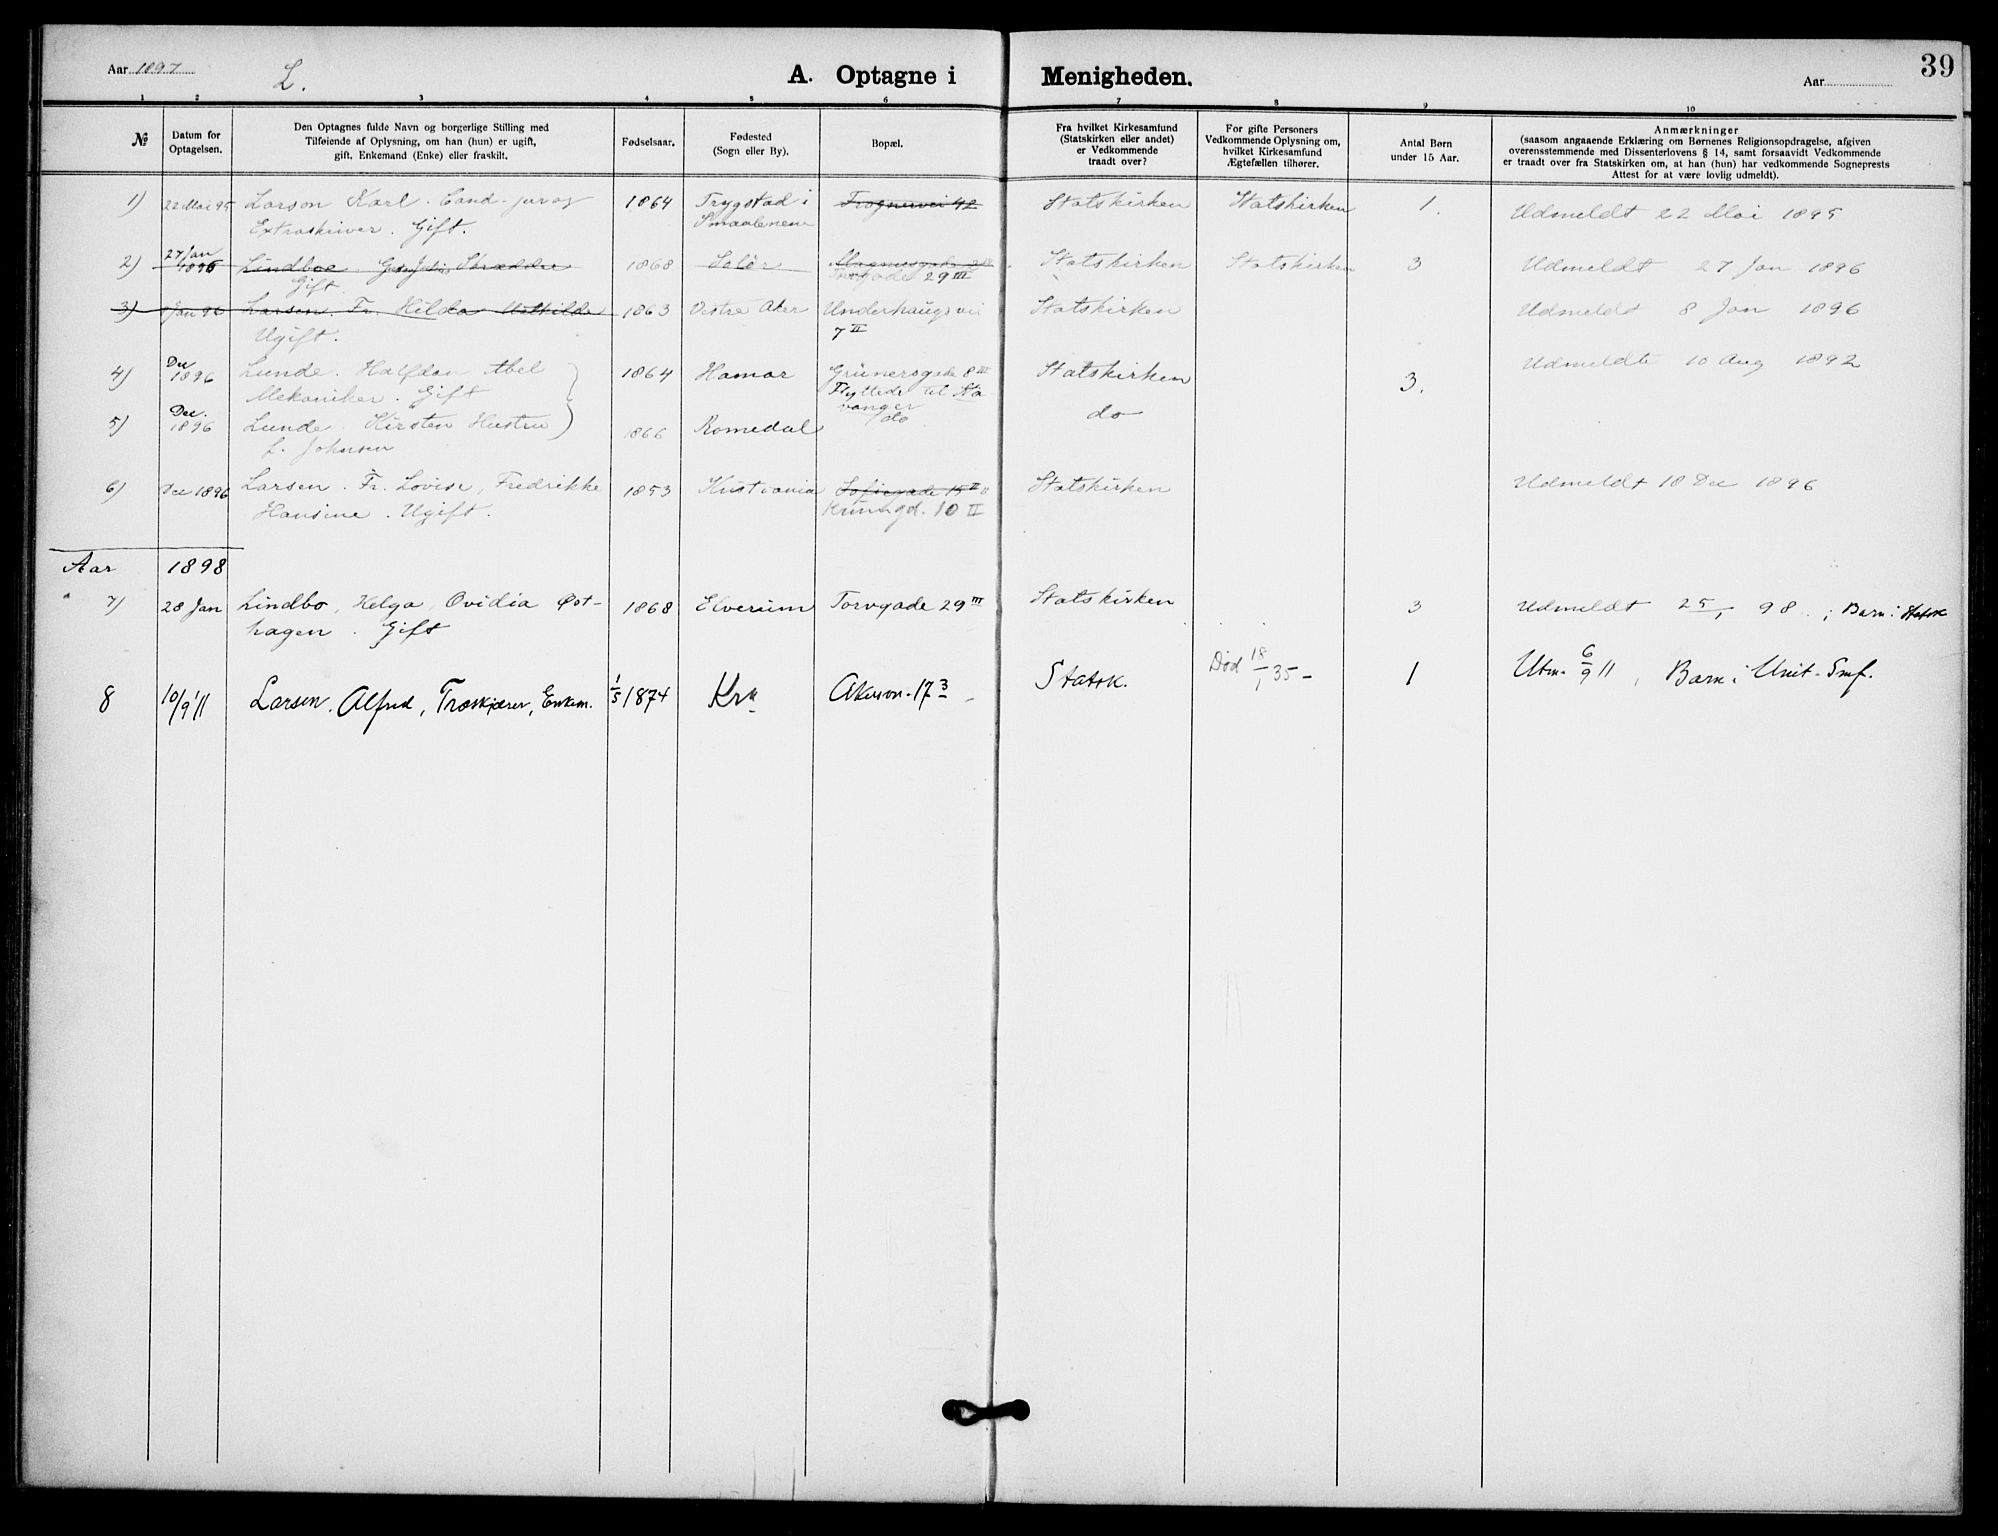 39
Aar 1897 L. A. Optagne i Menigheden. Aar
1 2 3 4 5 6 7 8 9 10
№
Datum for
Optagelsen.
Den Optagnes fulde Navn og borgerlige Stilling med
Tilføiende af Oplysning, om han (hun) er ugift,
gift, Enkemand (Enke) eller fraskilt.
Fødselsaar.
Fødested
(Sogn eller By).
Bopæl.
Fra hvilket Kirkesamfund
(Statskirken eller andet)
er Vedkommende
traadt over?
For gifte Personers
Vedkommende Oplysning om,
hvilket Kirkesamfund
Ægtefællen tilhører.
Antal Børn
under 15 Aar.
Anmærkninger
(saasom angaaende Erklæring om Børnenes Religionsopdragelse, afgiven
overensstemmende med Dissenterlovens § 14, samt forsaavidt Vedkommende
er traadt over fra Statskirken om, at han (hun) har vedkommende Sogneprests
Attest for at være lovlig udmeldt).
1) 22 Mai 95 Larson Karl. Cand. jur og 1864 Trygstad i Frognervei 42 Statskirken Statskirken 1. Udmeldt 22 Mai 1895
Extraskriver. Gift. Smaalenene
27 Jan
2) 1896 Lindboe Skrædder 1868 Solør Statskirken Statskirken 3 Udmeldt 27 Jan 1896
Gift Torvgade 29 III
3) Jan 96 Larsen. Fr. Hilda Mathilde 1863 Vestre Aker Underhaugsvei Statskirken Udmeldt 8 Jan 1896
Ugift. 7 II
4) Dec 1896 Lunde. Halfdan Abel 1864 Hamar Grünersgade 8 III Statskirken 3. Udmeldte 10 Aug 1892
Mekaniker. Gift Flyttede til Sta
vanger
5) Dec. 1896 Lunde. Kirsten Hustru 1866 Romedal do do
f. Johnsen
6) Dec 1896 Larsen. Fr. Lovise, Fredrikke 1853 Kristiania Sofiegade 15 II Statskirken Udmeldt 18 Dec 1896
Hansine. Ugift. 10 II
Aar 1898
7) 28 Jan Lindbo, Helga, Ovidia Øst- 1868 Elverum Torvgade 29 III Statskirken 3 Udmeldt 25/1 98. ; Barn i Statsk
hagen. Gift
8 10/9 11 Larsen. Alfred, Træskjærer, Enkem. 1/5 1874 Kra 17 3 Statsk. Død 18/1 35 - 1 Utm. 6/9 11, Barn i Unit. Smf.